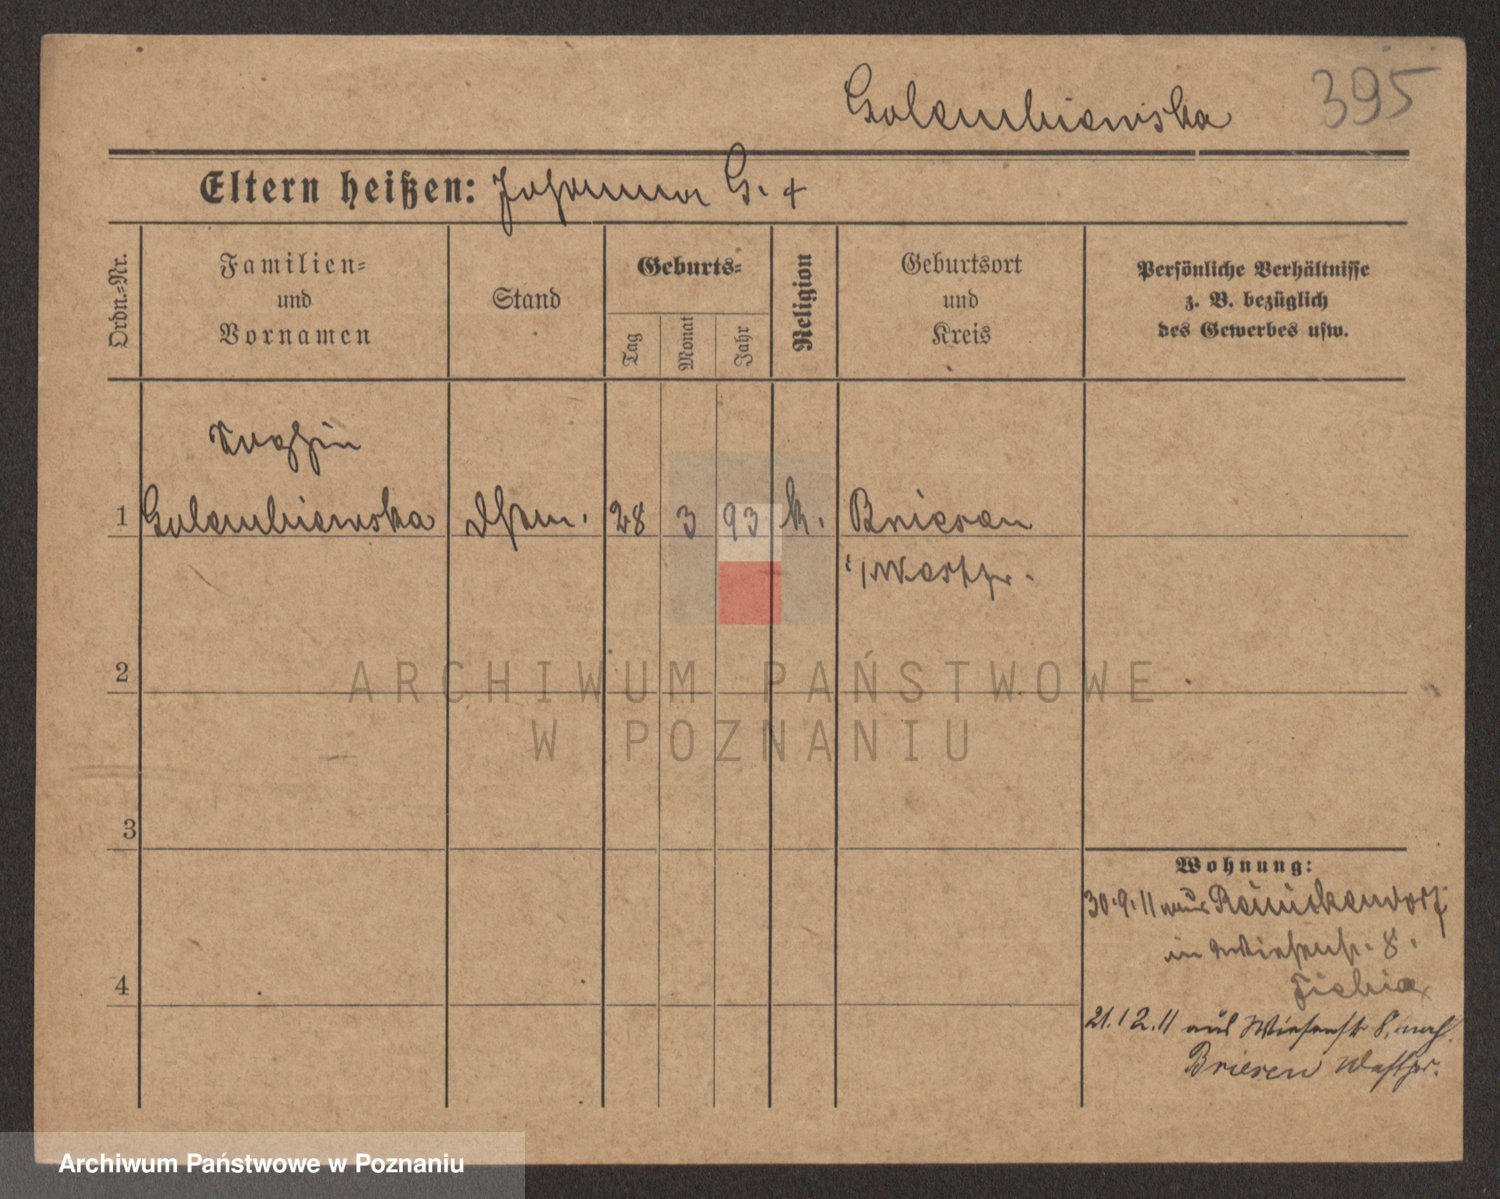 Golembiewska 395
Eltern heißen: Johanna G. +
Ordn.-Nr.
Familien-
und
Vornamen
Stand
Geburts-
Tag
Monat
Jahr
Religion
Geburtsort
und
Kreis
Persönliche Verhältnisse
z. B. bezüglich
des Gewerbes usw.
1 Golembiewska 28 3 93 k. Briesen
i/Westpr.
2
3
4
Wohnung:
30.9.11 aus Reinickendorf
in Wiesenstr. 8.
21.12.11 aus Wiesenstr 8, nach
Briesen Westpr.
ARCHIWUM PAŃSTWOWE
W POZNANIU
Archiwum Państwowe w Poznaniu